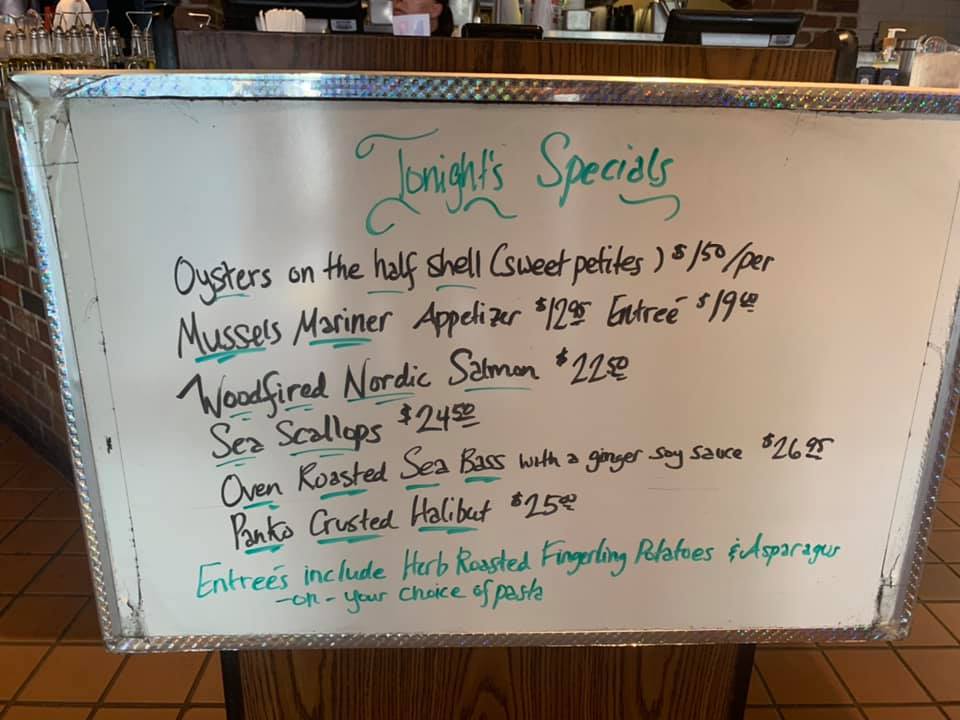 Tonight's Specials
Oysters on the half shell (sweet petites) $150/per
Mussels Mariner Appetizer $1295 Entreé $1900
Woodfired Nordic Salmon $2250
Sea Scallops $2450
Oven Roasted Sea Bass with a ginger soy sauce $2695
Panko Crusted Halibut $2500
Entreés include Herb Roasted Fingerling Potatoes & Asparagus
-or- your choice of pasta